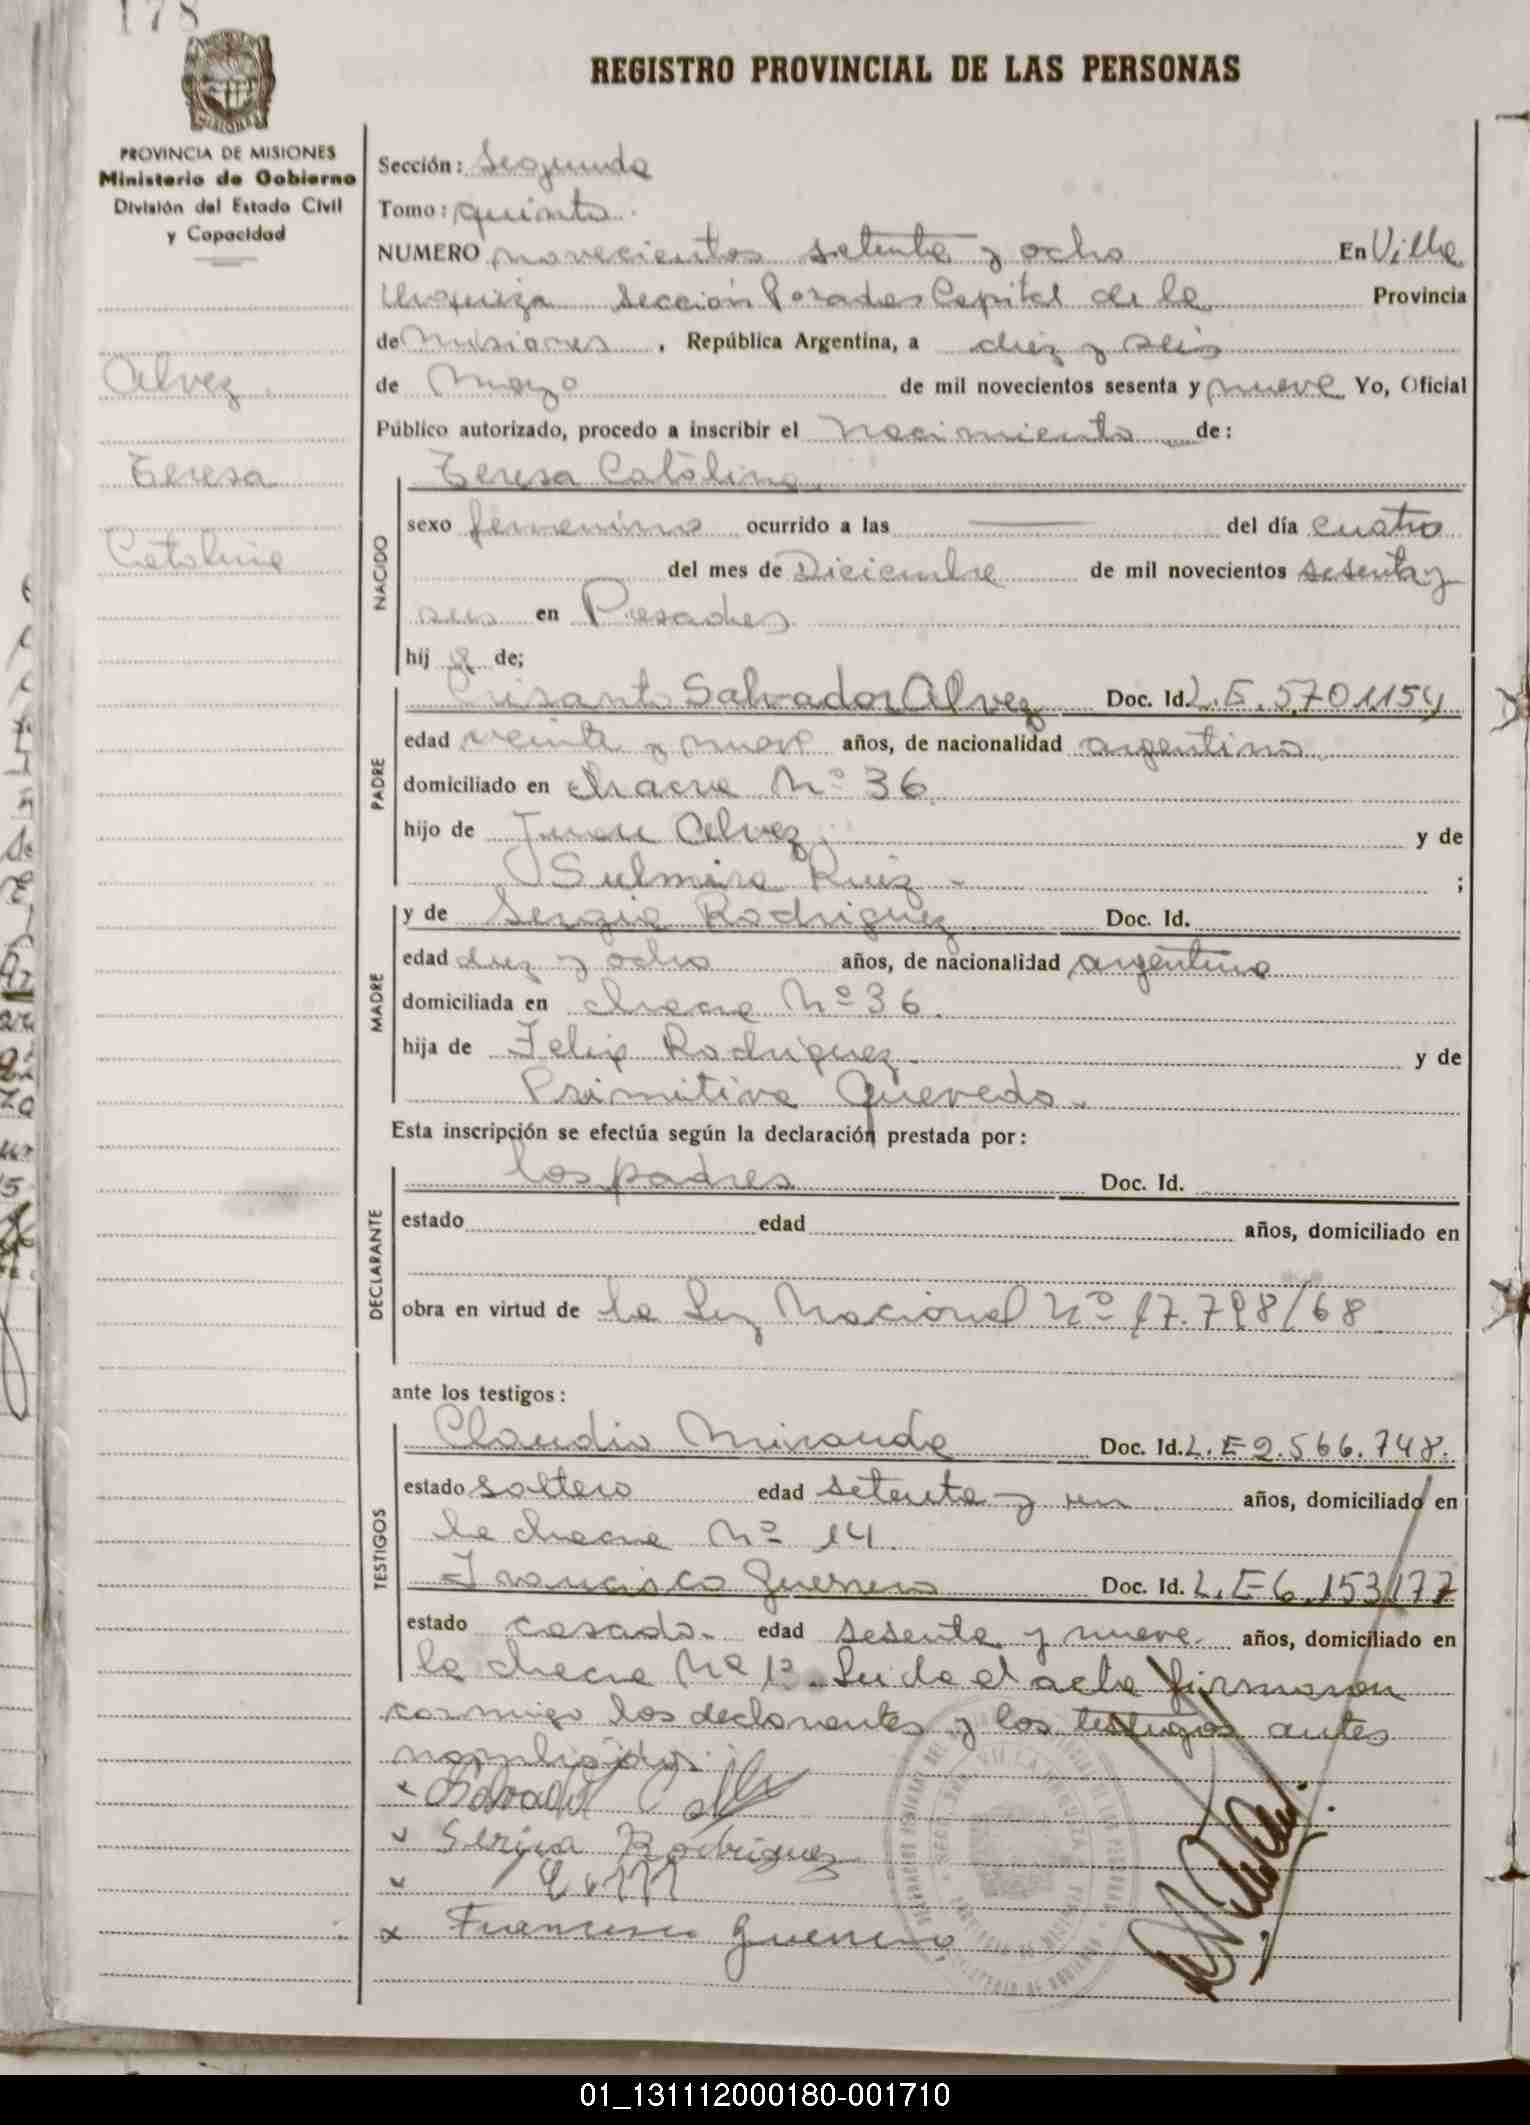 178
REGISTRO PROVINCIAL DE LAS PERSONAS
PROVINCIA DE MISIONES
Ministerio de Gobierno
División del Estado Civil
y Capacidad
Alvez
Teresa
Catalina
Sección: Segunda
Tomo: quinto
NUMERO novecientos setenta y ocho En Villa
Urquiza Sección Posadas Capital de la Provincia
de Misiones, República Argentina, a diez y seis
de Mayo de mil novecientos sesenta y nueve Yo, Oficial
Público autorizado, procedo a inscribir el Nacimiento de:
NACIDO
Teresa Catalina
sexo femenino ocurrido a las — del día cuatro
del mes de Diciembre de mil novecientos sesenta y
seis en Posadas
hija de;
PADRE
Crisanto Salvador Alvez Doc. Id. L.E. 5.701.154
edad veinte y nueve años, de nacionalidad argentino
domiciliado en chacra Nº 36
hijo de Juan Alvez y de
Sulmira Ruiz - ;
MADRE
y de Sergia Rodriguez Doc. Id.
edad diez y ocho años, de nacionalidad argentina
domiciliada en chacra Nº 36.
hija de Felix Rodriguez y de
Primitiva Quevedo.
Esta inscripción se efectúa según la declaración prestada por:
DECLARANTE
los padres Doc. Id.
estado edad años, domiciliado en
obra en virtud de la Ley Nacional Nº 17.798/68
ante los testigos:
TESTIGOS
Claudio Miranda Doc. Id. L.E 2.566.748.
estado soltero edad setenta y un años, domiciliado en
la chacra Nº 14.
Francisco Guerrero Doc. Id. L.E 6.153.177
estado casado. edad sesenta y nueve años, domiciliado en
la chacra Nº Leida el acta firmaron
conmigo los declarantes y los testigos antes
Salvador
Sergia Rodriguez
Francisco Guerrero
01_131112000180-001710